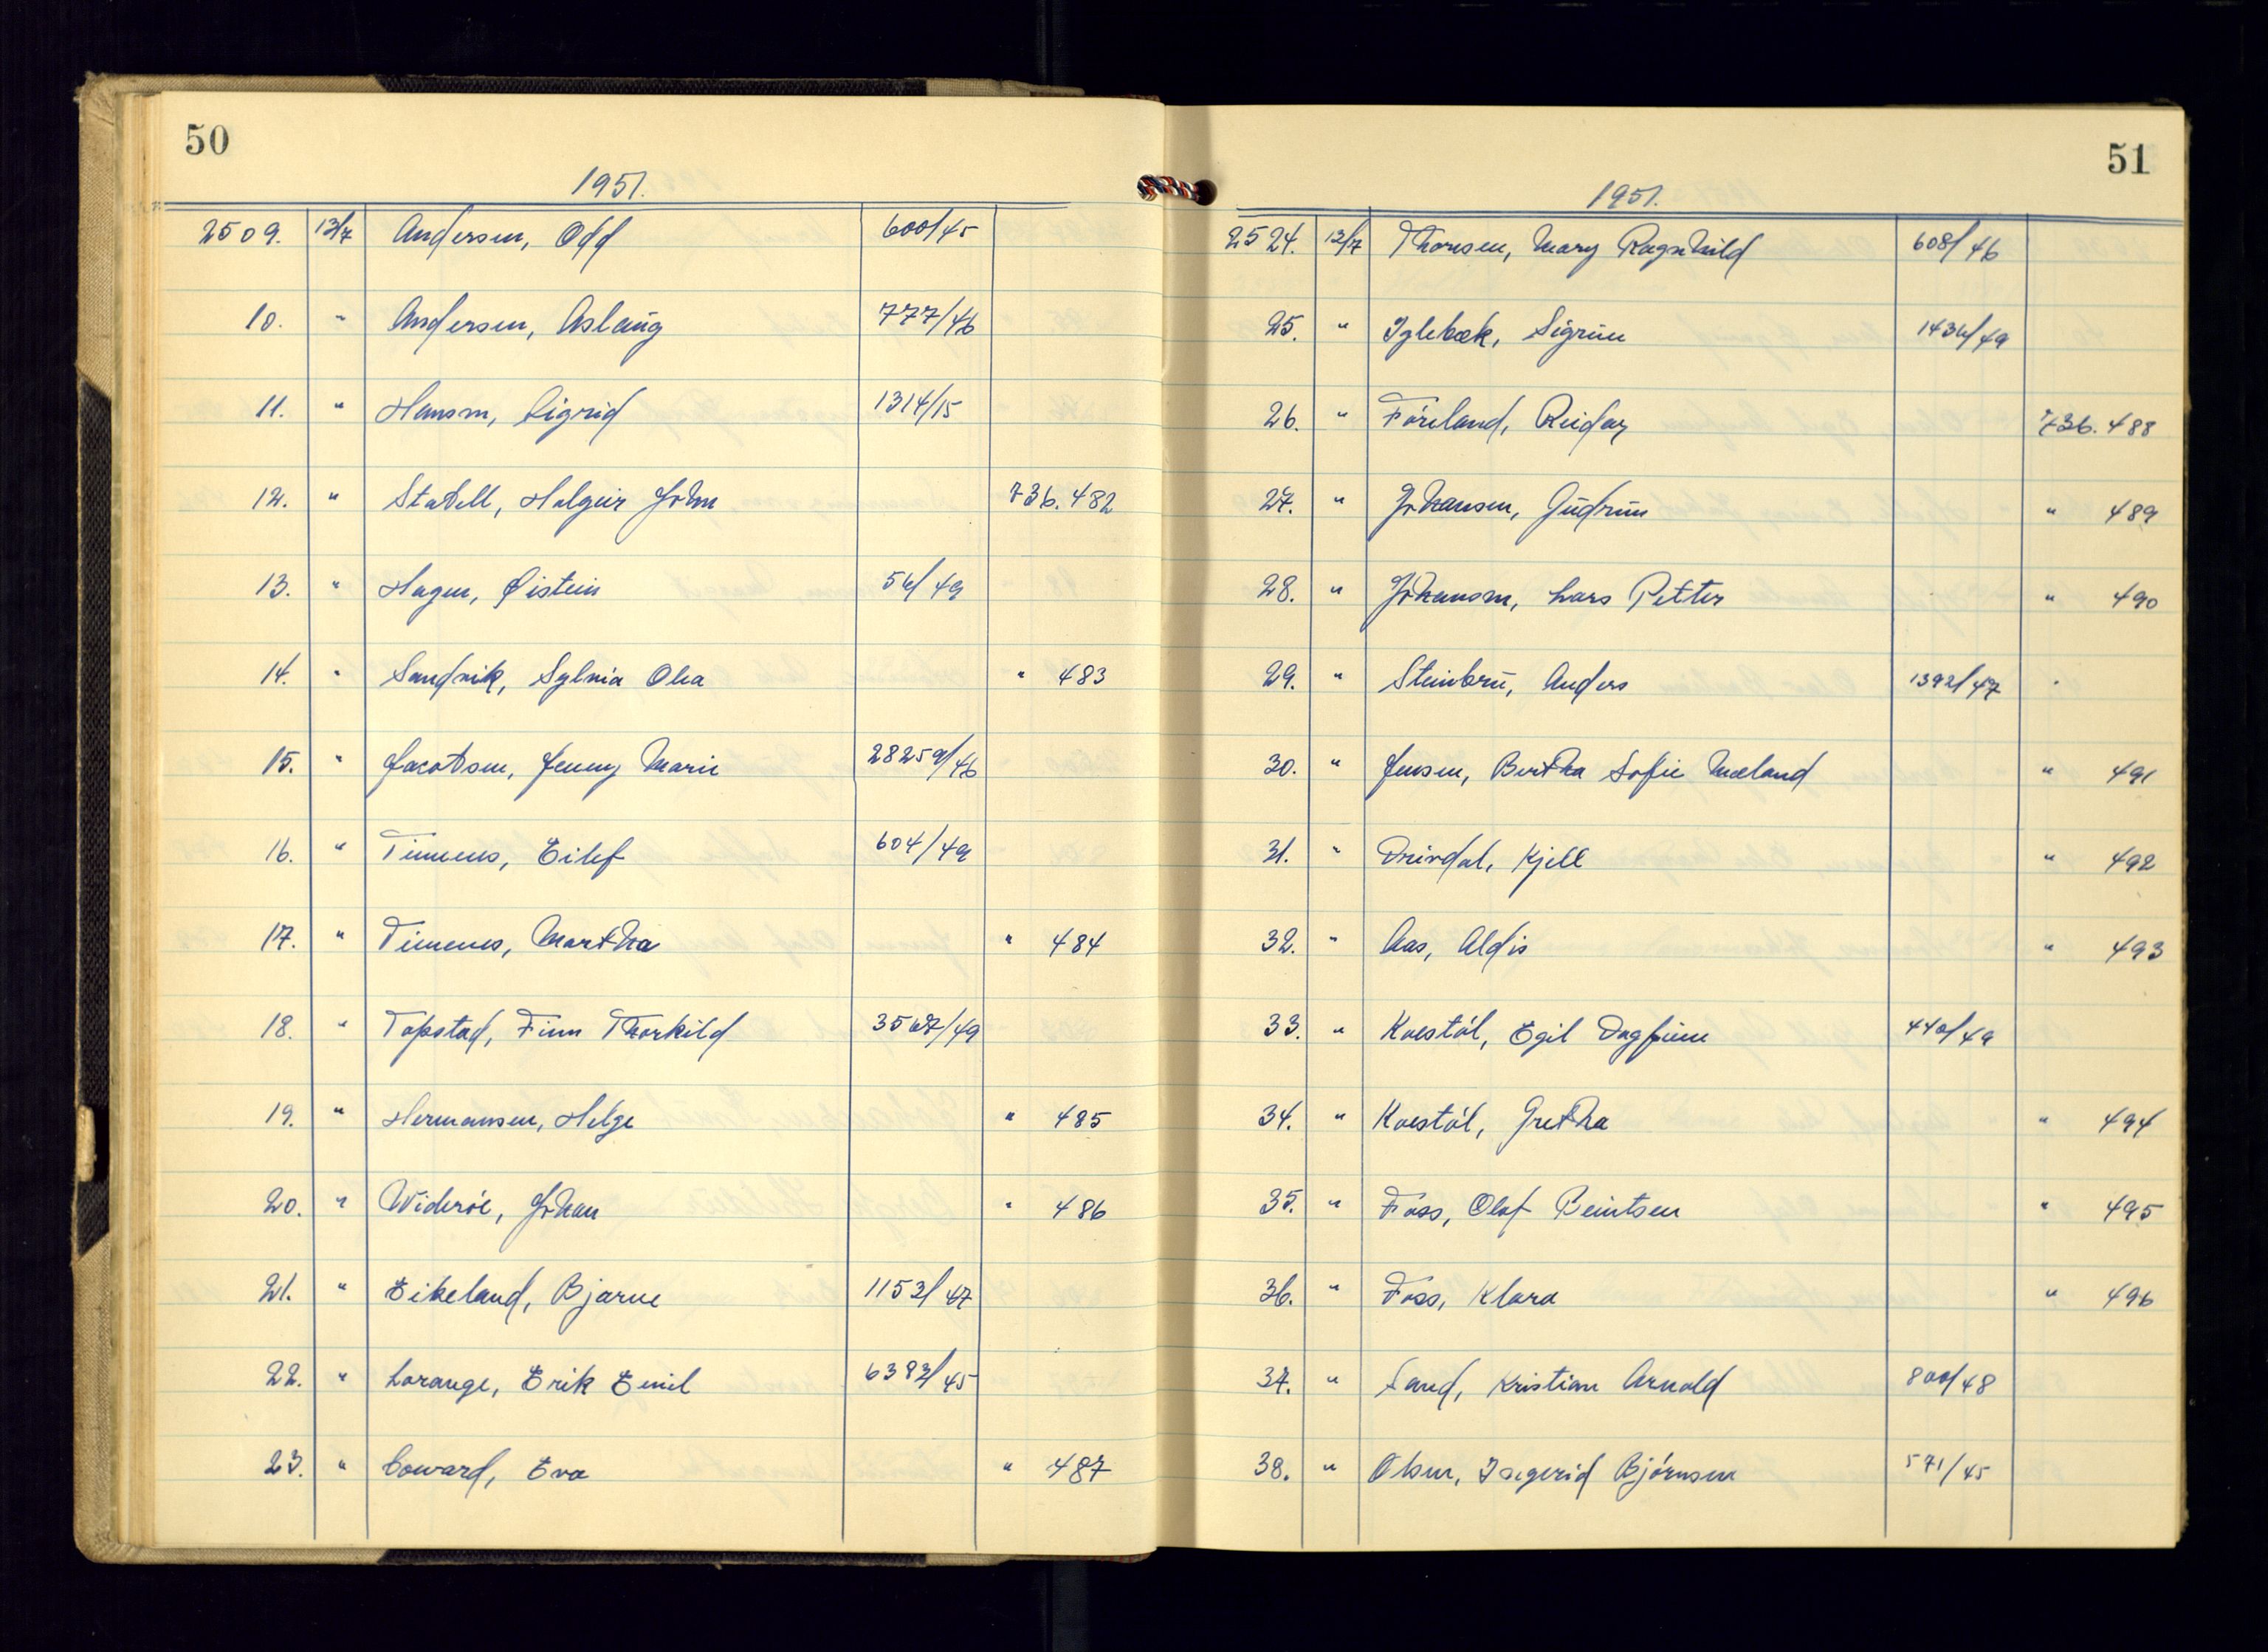 50
1951.
2509. 13/7 Andersen, Odd 600/45
10. " Andersen, Aslaug 777/46
11. " Hansen, Sigrid 1314/15
12. " Stabell, Holgeir John 736.482
13. " Hagen, Øistein 56/49
14. " Sandvik, Sylvia Olea " 483
15. " Jacobsen, Jenny Marie 28259/46
16. " Timenes, Eilef 604/49
17. " Timenes, Martha " 484
18. " Topstad, Finn Thorkild 3567/49
19. " Hermansen, Helge " 485
20. " Widerøe, Johan " 486
21. " Eikeland, Bjarne 1153/47
22. " Lorange, Erik Emil 6383/45
23. " Coward, Eva " 487
51
1951.
2524. 13/7 Thomsen, Mary Ragnhild 608/46
25. " Iglebæk, Sigrun 1436/49
26. " Føreland, Reidar 736.488
27. " Johansen, Gudrun " 489
28. " Johansen, Lars Petter " 490
29. " Steinbru, Anders 1392/47
30. " Jensen, Bertha Sofie Mæland " 491
31. " Drivdal, Kjell " 492
32. " Aas, Aldis " 493
33. " Kvestøl, Egil Dagfinn 440/49
34. " Kvestøl, Gretha " 494
35. " Foss, Olaf Beintsen " 495
36. " Foss, Klara " 496
37. " Sand, Kristian Arnold 800/48
38. " Olsen, Ingerid Bjørnsen 571/45